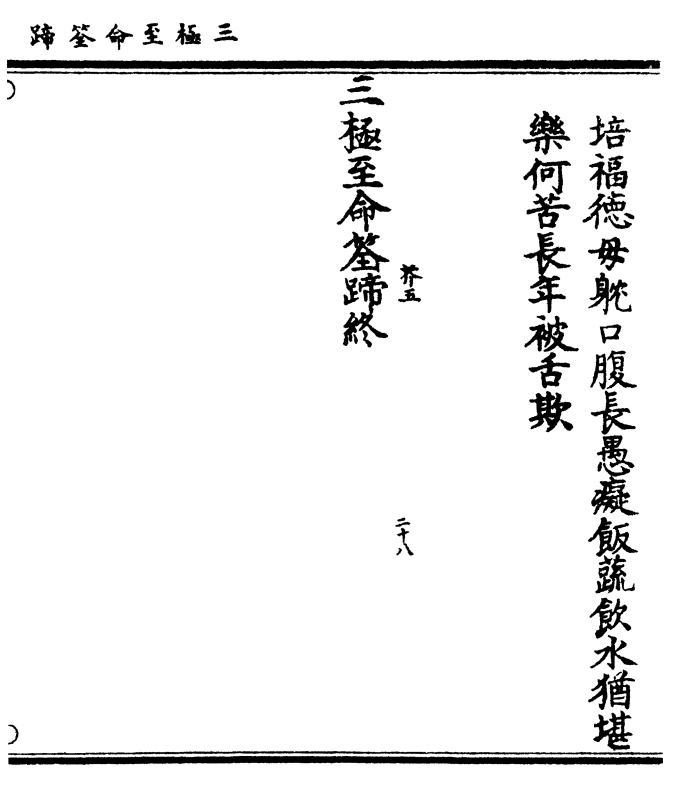 三極至命筌蹄
培福德毋躭口腹長愚癡飯蔬飲水猶堪
樂何苦長年被舌欺
芥五
二十八
三極至命筌蹄終